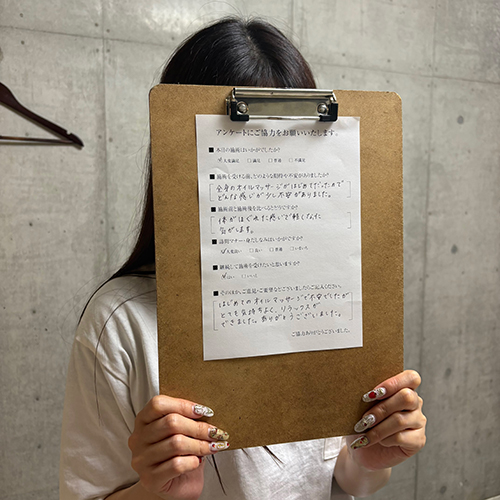 アンケートにご協力をお願いいたします。
■ 本日の施術はいかがでしたか？
☑大変満足 □満足 □普通 □不満足
■ 施術を受ける前、どのような期待や不安がありましたか？
全身のオイルマッサージがはじめてだったので
どんな感じか少し不安がありました。
■ 施術前と施術後を比べるとどうですか？
体がほぐれた感じで軽くなった
気がします。
■ 訪問マナー・身だしなみはいかがですか？
☑大変良い □良い □普通 □悪い
■ 継続して施術を受けたいと思いますか？
☑はい □いいえ
■ そのほかご意見・ご要望などございましたらご記入ください。
はじめてのオイルマッサージで不安でしたが
とても気持ちよく、リラックスが
できました。ありがとうございました。
ご協力ありがとうございました。